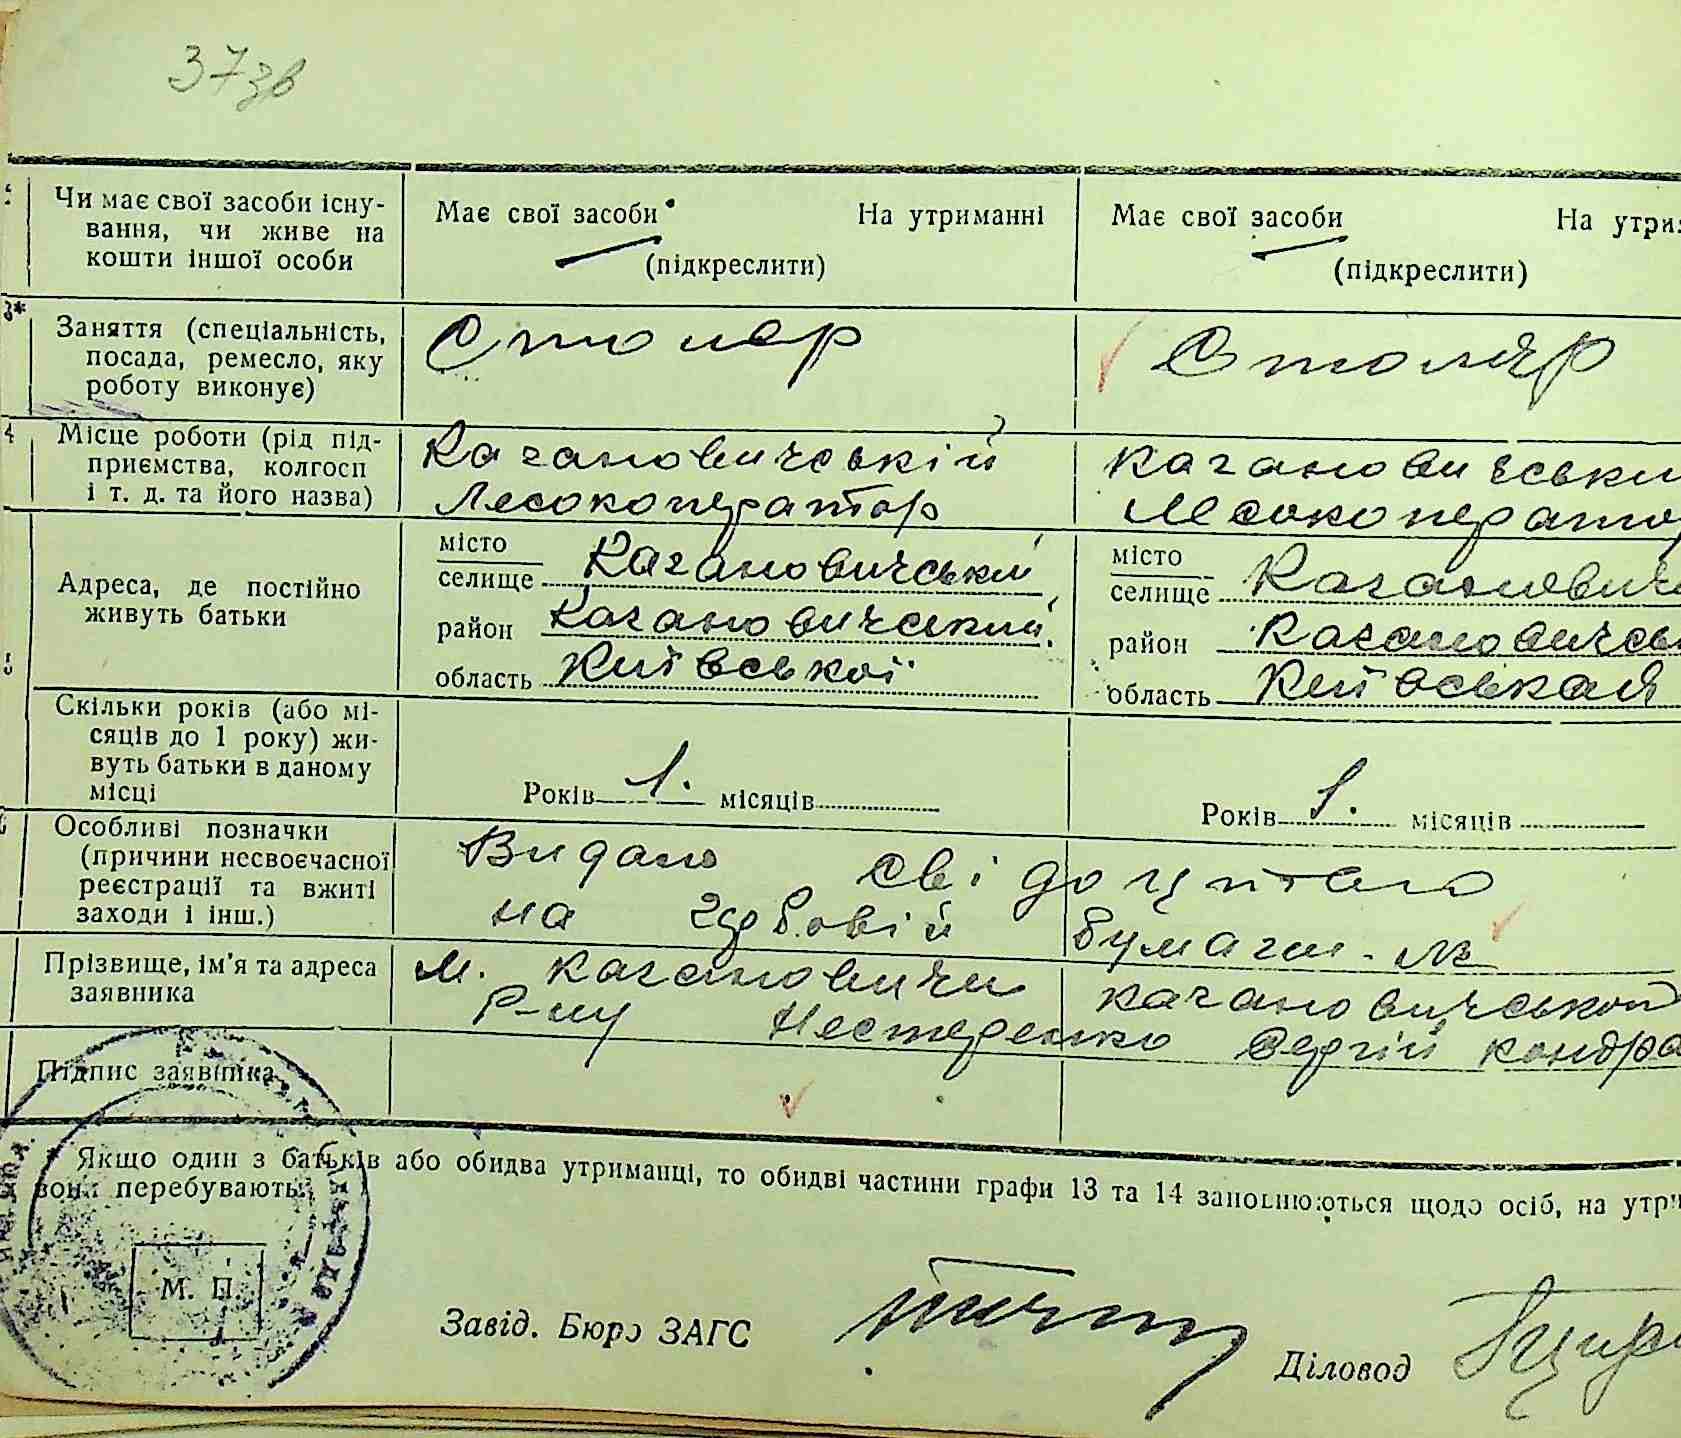 37зв
Чи має свої засоби існу-
вання, чи живе на
кошти іншої особи
Має свої засоби На утриманні
(підкреслити)
Має свої засоби На утри
(підкреслити)
3*
Заняття (спеціальність,
посада, ремесло, яку
роботу виконує)
Столяр
Столяр
4
Місце роботи (рід під-
приємства, колгосп
і т. д. та його назва)
Кагановичській
Лесокоператор
Кагановичськи
Лесокоперато
Адреса, де постійно
живуть батьки
місто
селище Кагановичський
район Кагановичський
область Київської
місто
селище Кагановиче
район Кагановичсь
область Київськая
Скільки років (або мі-
сяців до 1 року) жи-
вуть батьки в даному
місці
Років 1. місяців
Років 1. місяців
Особливі позначки
(причини несвоєчасної
реєстрації та вжиті
заходи і інш.)
Видано
на бумаги. №
Прізвище, ім'я та адреса
заявника
м. Кагановичи Кагановичськой
Р-ну Нестеренко Сергій Кондра
Підпис заявника
Якщо один з батьків або обидва утриманці, то обидві частини графи 13 та 14 заповнюються щодо осіб, на утри
вони перебувають.
М. П.
Завід. Бюро ЗАГС
Діловод